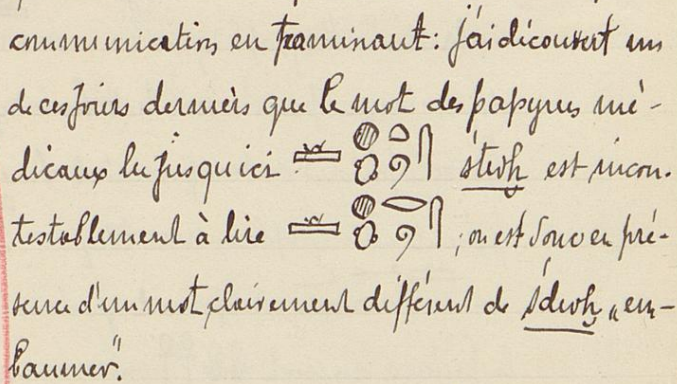 communication en terminant: j'ai découvert un
de ces jours derniers que le mot des papyrus mé-
dicaux lu jusqu'ici śtwḫ est incon-
testablement à lire ; on est donc en pré-
sence d'un mot clairement différent de śdwḫ „em-
baumer".